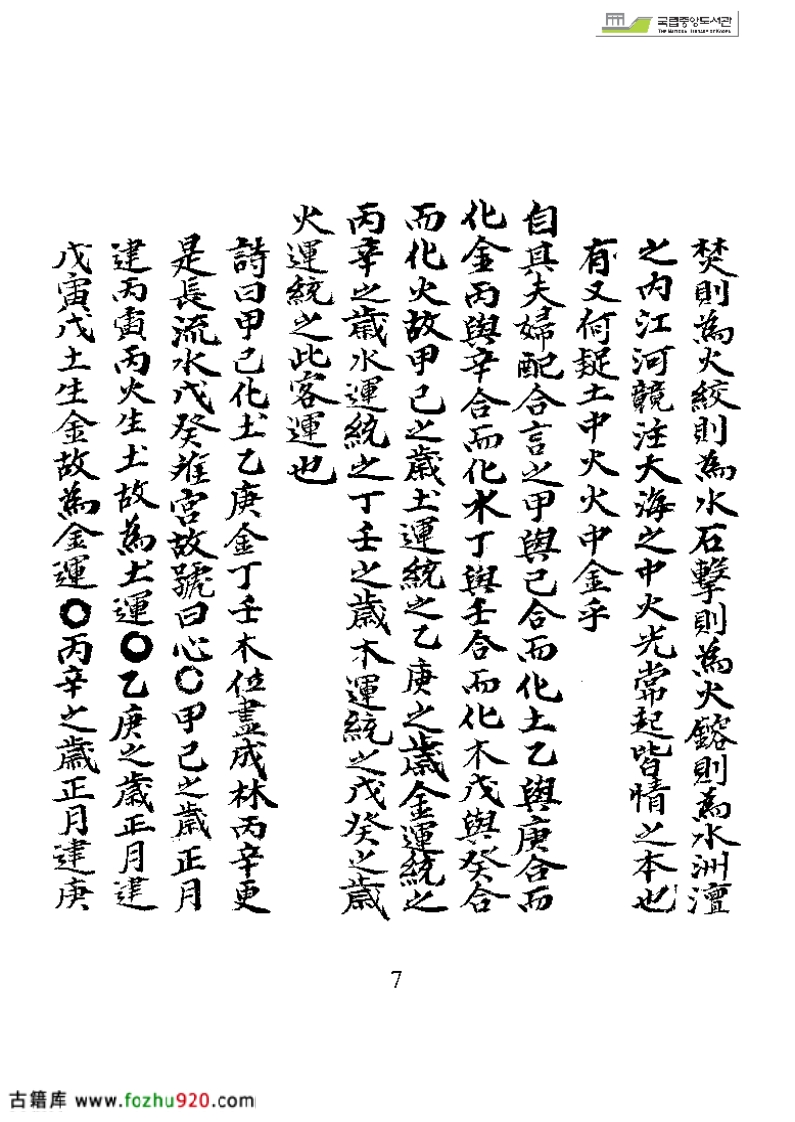 국립중앙도서관
THE NATIONAL LIBRARY OF KOREA
焚則為火絞則為水石擊則為火鎔則為水洲澶
之內江河競注大海之中火光常起皆情之本也
有又何疑土中火火中金乎
自其夫婦配合言之甲與己合而化土乙與庚合而
化金丙與辛合而化水丁與壬合而化木戊與癸合
而化火故甲己之歲土運統之乙庚之歲金運統之
丙辛之歲水運統之丁壬之歲木運統之戊癸之歲
火運統之此客運也
詩曰甲己化土乙庚金丁壬木位盡成林丙辛更
是長流水戊癸離宮故號曰心〇甲己之歲正月
建丙寅丙火生土故為土運〇乙庚之歲正月建
戊寅戊土生金故為金運〇丙辛之歲正月建庚
7
古籍库 www.fozhu920.com